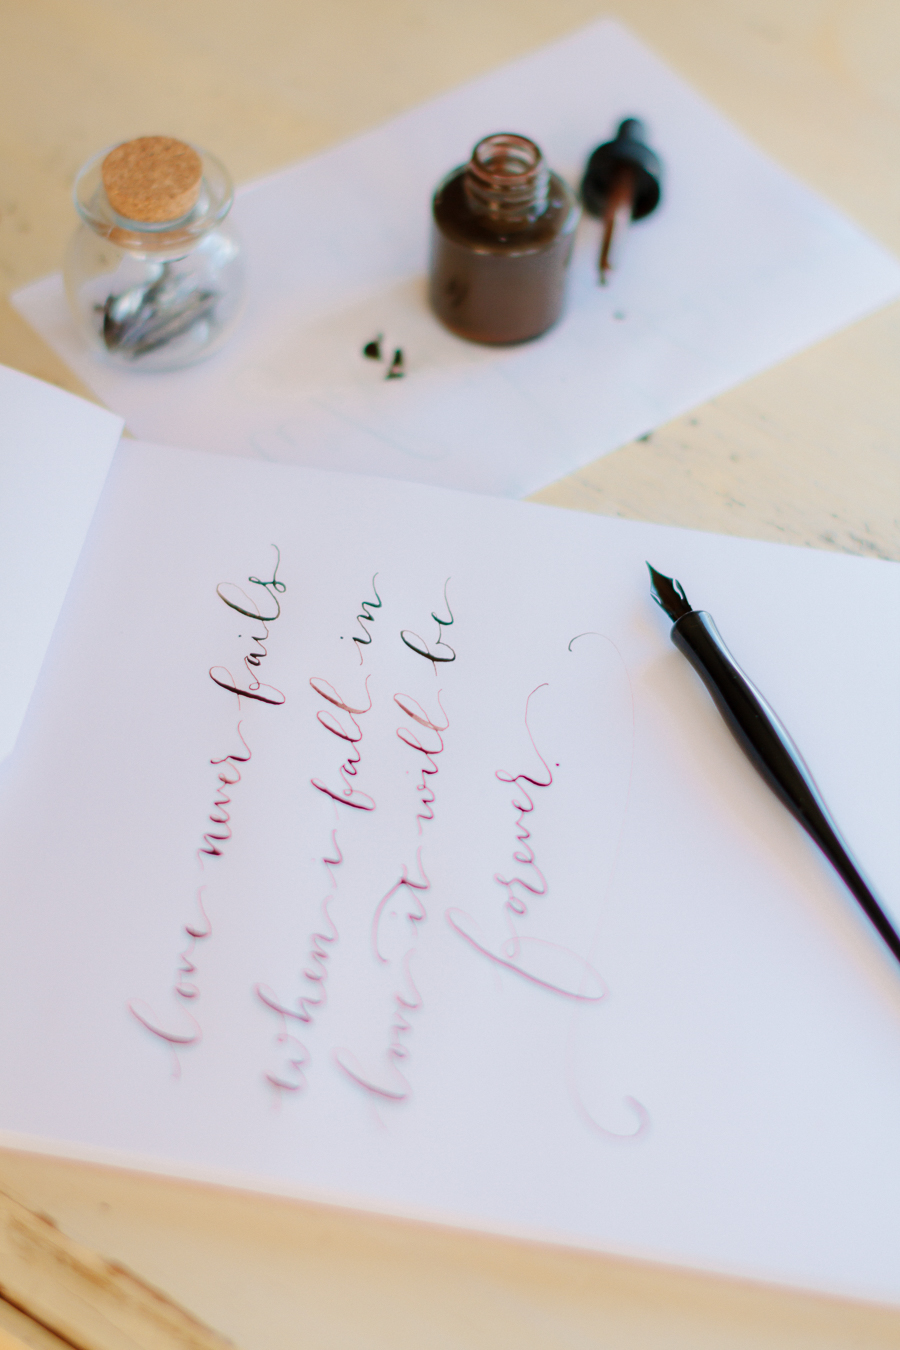 love never fails
when i fall in
love it will be
forever.